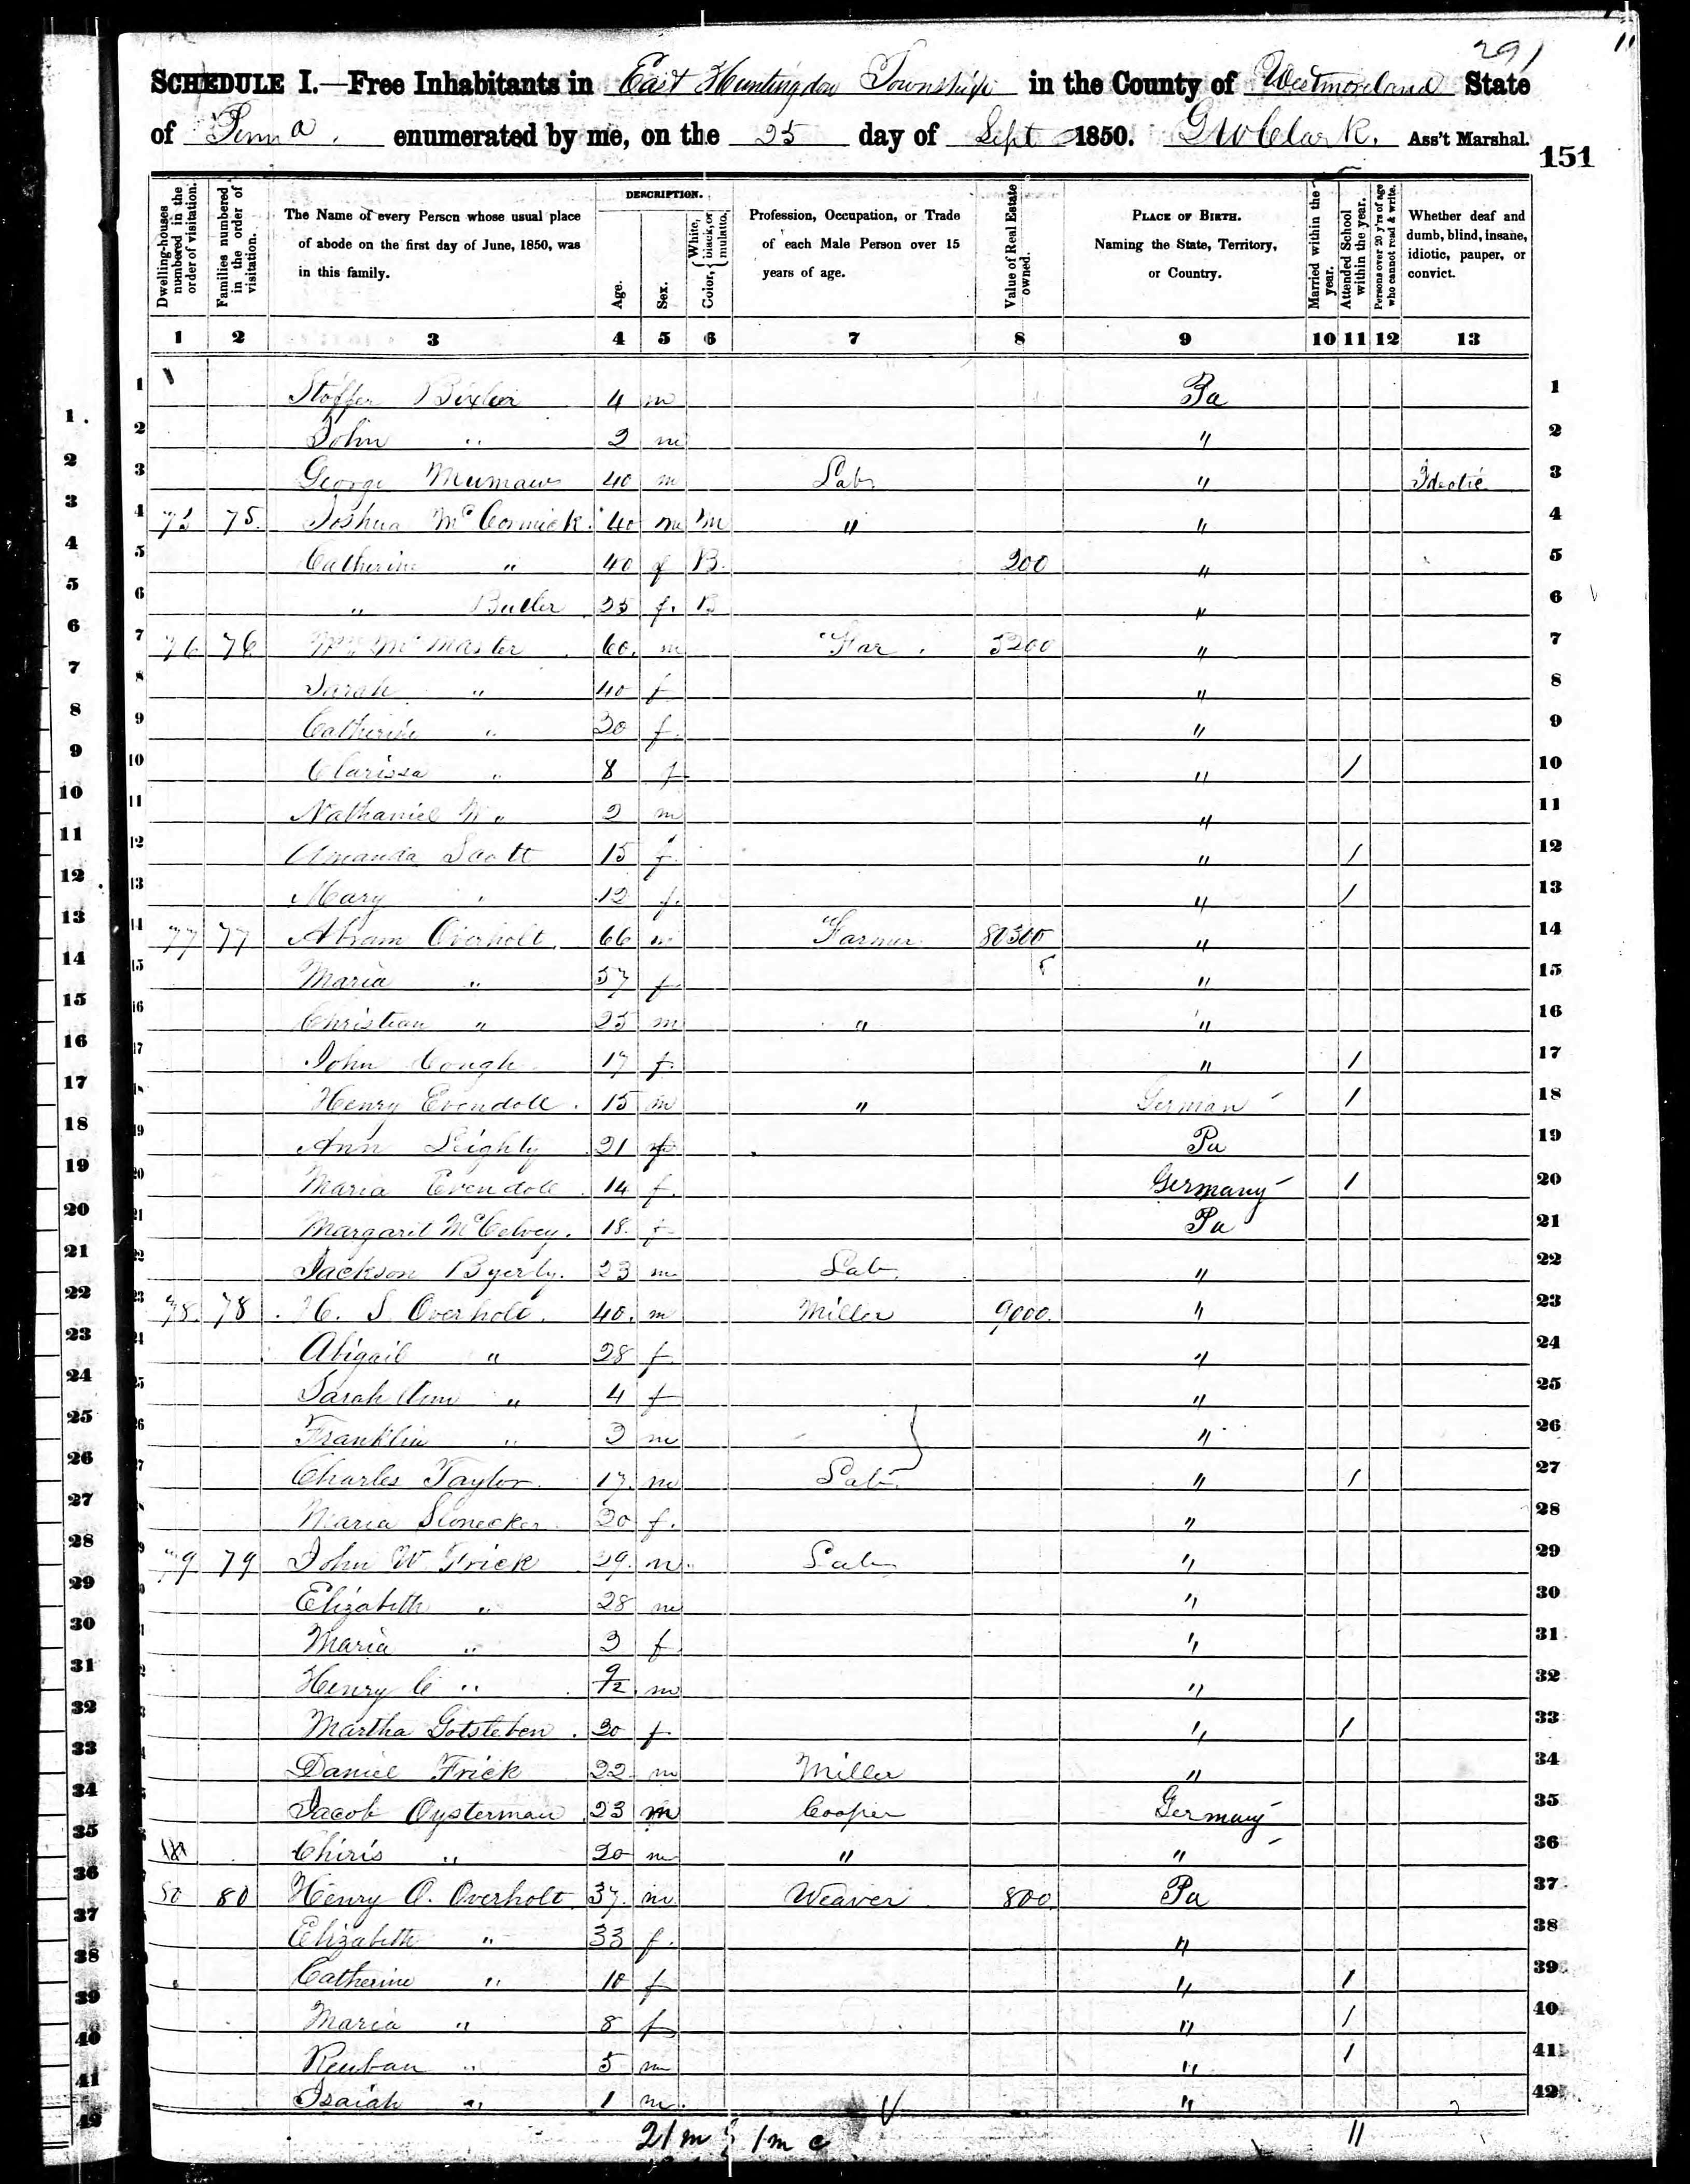 291
SCHEDULE I.—Free Inhabitants in East Huntingdon Township in the County of Westmoreland State
of Penna. enumerated by me, on the 25 day of Sept 1850. G W Clark. Ass't Marshal.
151
Dwelling-houses numbered in the order of visitation.
Families numbered in the order of visitation.
The Name of every Person whose usual place of abode on the first day of June, 1850, was in this family.
DESCRIPTION.
Age.
Sex.
Color, { White, black, or mulatto.
Profession, Occupation, or Trade of each Male Person over 15 years of age.
Value of Real Estate owned.
PLACE OF BIRTH. Naming the State, Territory, or Country.
Married within the year.
Attended School within the year.
Persons over 20 y'rs of age who cannot read & write.
Whether deaf and dumb, blind, insane, idiotic, pauper, or convict.
1 2 3 4 5 6 7 8 9 10 11 12 13
1 Stoffer Bixler 4 m Pa 1
2 John " 2 m " 2
3 George Mumaw 40 m Lab " 3
4 75 75. Joshua McCormick. 40 m m " " 4
5 Catherine " 40 f B. 200 " 5
6 " Butler 25 f. B " 6
7 76 76 Wm McMaster 60. m Far. 5200 " 7
8 Sarah " 40 f " 8
9 Catherine " 20 f. " 9
10 Clarissa " 8 f " / 10
11 Nathaniel W " 2 m " 11
12 Amanda Scott 15 f. " / 12
13 Mary " 12 f. " / 13
14 77 77 Abram Overholt. 66 m Farmer 80300 " 14
15 Maria " 57 f " 15
16 Christian " 25 m " " 16
17 John Cough 17 f. " / 17
18 Henry Evendoll. 15 m " German / 18
19 Ann Leighty 21 f Pa 19
20 Maria Evendoll 14 f. Germany / 20
21 Margaret McCelvey. 18. f Pa 21
22 Jackson Byerly. 23 m Lab " 22
23 78. 78 H. S Overholt. 40. m Miller 9000. " 23
24 Abigail " 28 f. " 24
25 Sarah Ann " 4 f " 25
26 Franklin " 3 m " 26
27 Charles Taylor. 17. m Lab. " / 27
28 Maria Stonecker 20 f. " 28
29 79 79 John W Frick 29. m. Lab " 29
30 Elizabeth " 28 m " 30
31 Maria " 3 f. " 31
32 Henry C " 9/12 m " 32
33 Martha Gotsleben. 30 f " / 33
34 Daniel Frick 22 m Miller " 34
35 Jacob Oysterman 23 m Cooper Germany 35
36 Chiris " 20 m " " 36
37 80 80 Henry O. Overholt 37. m Weaver 800. Pa 37
38 Elizabeth " 33 f. " 38
39 Catherine " 10 f " / 39
40 Maria " 8 f " / 40
41 Reuban " 5 m " / 41
42 Isaiah " 1 m. " 42
21 m 1 m c 11